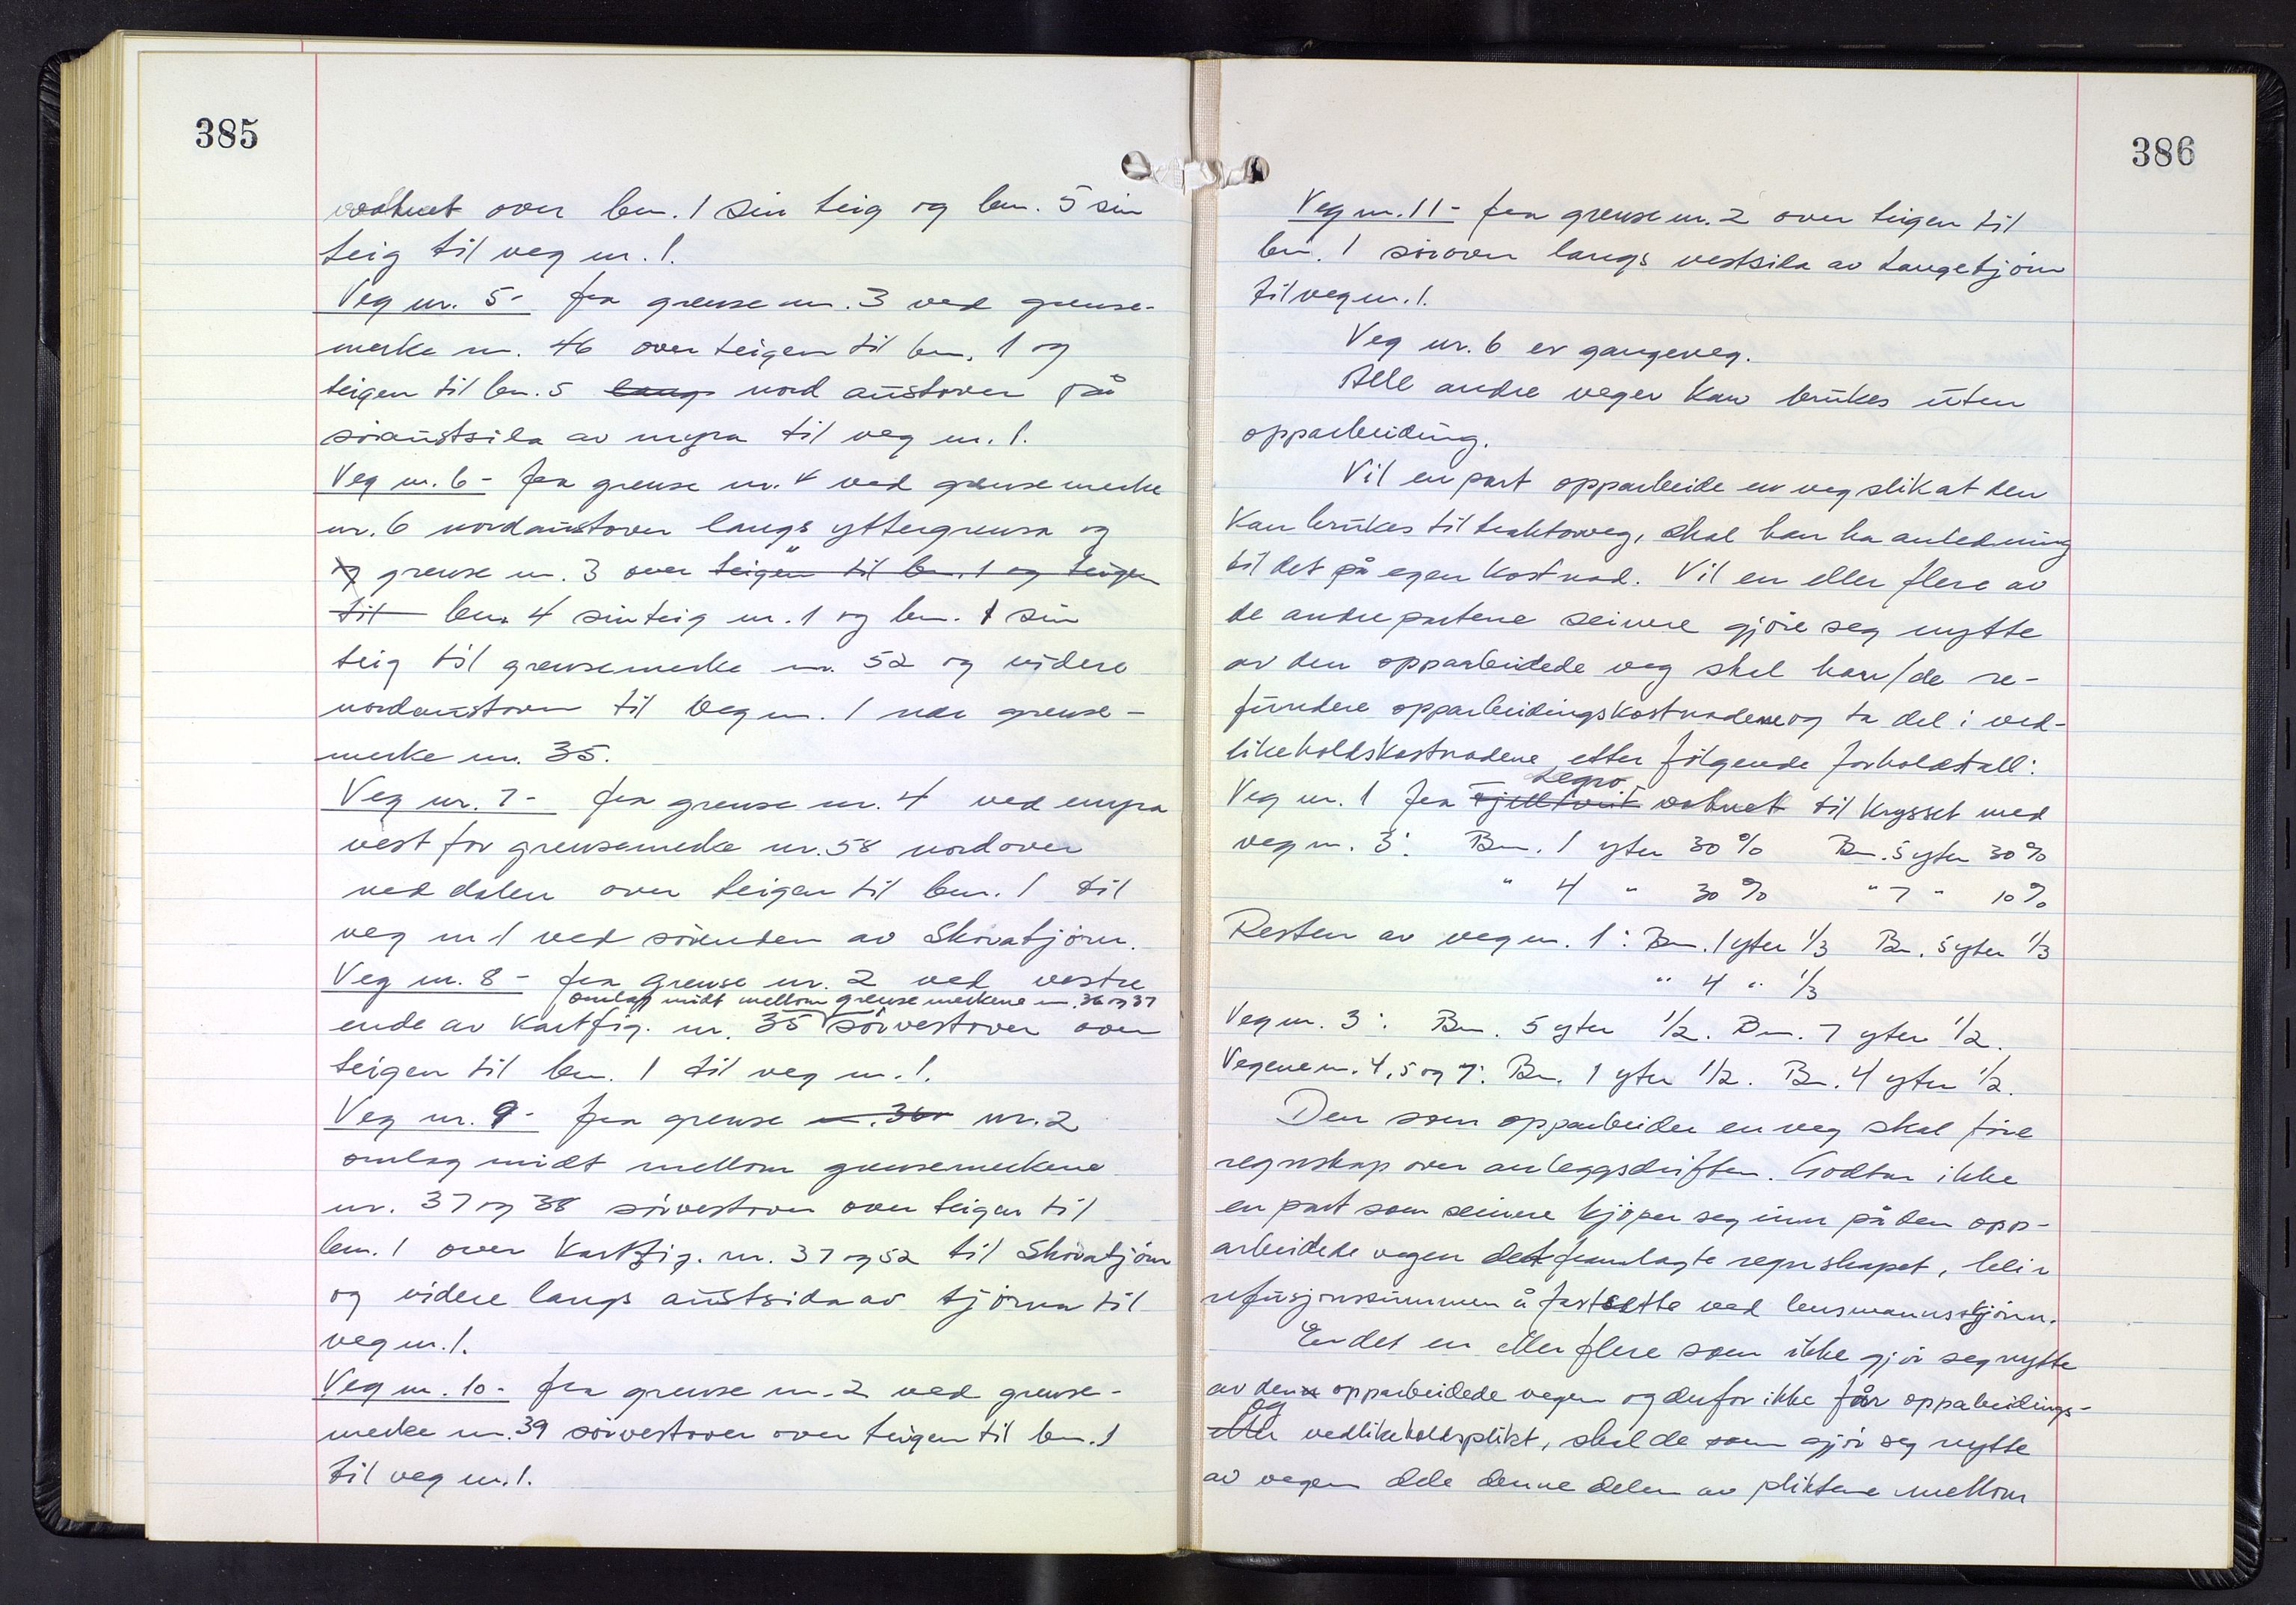 385
vatnet over bnr. 1 sin teig og bnr. 5 sin
teig til veg nr. 1.
Veg nr. 5 - fra grense nr. 3 ved grense-
merke nr. 46 over teigen til bnr. 1 og
teigen til bnr. 5 langs nord austover på
søraustsida av myra til veg nr. 1.
Veg nr. 6 - fra grense nr. 4 ved grensemerke
nr. 6 nordaustover langs yttergrensa og
og grense nr. 3 over teigen til bnr. 1 og teigen
til bnr. 4 sin teig nr. 1 og bnr. 1 sin
teig til grensemerke nr. 52 og videre
nordaustover til veg nr. 1 nær grense-
merke nr. 35.
Veg nr. 7 - fra grense nr. 4 ved myra
vest for grensemerke nr. 58 nordover
ved dalen over teigen til bnr. 1 til
veg nr 1 ved sørenden av Skovatjørn.
Veg nr. 8 - fra grense nr. 2 ved vestre
omlag midt mellom grensemerkene nr. 36 og 37
ende av kartfig. nr. 35 sørvestover over
teigen til bnr. 1 til veg nr. 1.
Veg nr. 9 - fra grense nr. 36 nr. 2
omlag midt mellom grensemerkene
nr. 37 og 38 sørvestover over teigen til
bnr. 1 over kartfig. nr. 37 og 52 til Skovatjørn
og videre langs austsida av tjørna til
veg nr. 1.
Veg nr. 10 - fra grense nr. 2 ved grense-
merke nr. 39 sørvestover over teigen til bnr. 1
til veg nr. 1.
386
Veg nr. 11 - fra grense nr. 2 over teigen til
bnr. 1 sørover langs vestsida av Langetjørn
til veg nr. 1.
Veg nr. 6 er gangveg.
Alle andre veger kan brukes uten
opparbeiding.
Vil en part opparbeide en veg slik at den
kan brukes til traktorveg, skal han ha anledning
til det på egen kostnad. Vil en eller flere av
de andre partene seinere gjøre seg nytte
av den opparbeidede veg skal han/de re-
fundere opparbeidingskostnadene og ta del i ved-
likeholdskostnadene etter følgende forholdstall:
Legro
Veg nr. 1 fra Fjelltveit vatnet til krysset med
veg nr. 3: Bnr. 1 yter 30% Bnr. 5 yter 30%
" 4 " 30% " 7 " 10%
Resten av veg nr. 1: Bnr. 1 yter 1/3 Bnr. 5 yter 1/3
" 4 " 1/3
Veg nr. 3: Bnr. 5 yter 1/2. Bnr. 7 yter 1/2.
Vegene nr. 4, 5 og 7: Bnr. 1 yter 1/2. Bnr. 4 yter 1/2.
Den som opparbeider en veg skal føre
regnskap over anleggsdriften. Godtar ikke
en part som seinere kjøper seg inn på den opp-
arbeidede vegen det framlagte regnskapet, blir
refusjonssummen å fastsette ved lensmannsskjønn.
Er det en eller flere som ikke gjør seg nytte
av den opparbeidede vegen og derfor ikke får opparbeidings-
og
eller vedlikeholdsplikt, skal de som gjør seg nytte
av vegen dele denne delen av pliktene mellom